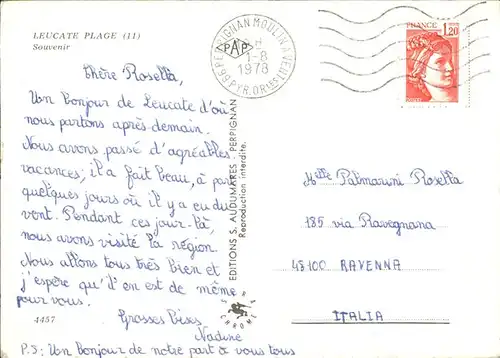 LEUCATE PLAGE (11)
Souvenir
Chère Rosella,
Un bonjour de Leucate d'où
nous partons après demain.
Nous avons passé d'agréables
vacances, il a fait beau, à part
quelques jours où il y a eu du
vent. Pendant ces jour-là,
nous avons visité la région.
Nous allons tous très bien et
j'espère qu'il en est de même
pour vous.
Grosses bises
Nadine
P.S: Un bonjour de notre part à vous tous
4457
EDITIONS S. AUDUMARES - PERPIGNAN
Reproduction interdite.
66 PERPIGNAN MOULIN A VENT
PYR. ORIES
PAP
1-8
1978
FRANCE
1,20
Melle Palmarini Rosella
185 via Ravegnana
48100 RAVENNA
ITALIA